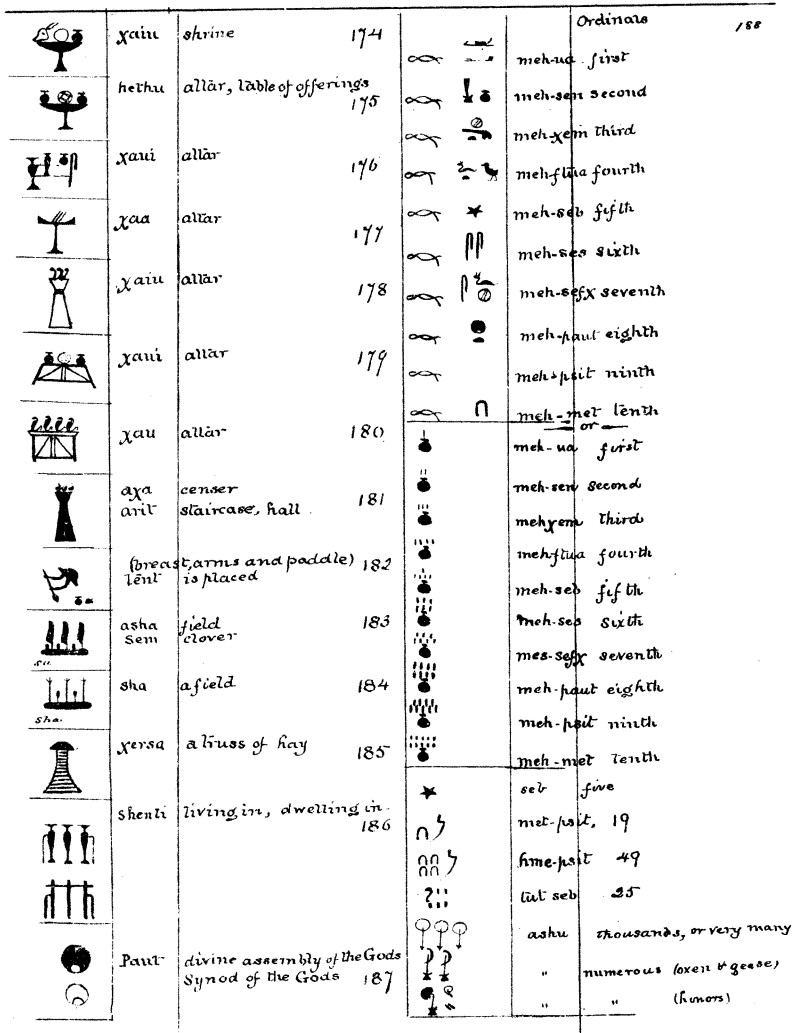 χaiu shrine 174
hethu altar, table of offerings
175
χaui altar 176
χaa altar
177
χaiu altar 178
χaui altar 179
χau altar 180
aχa censer
arit staircase, hall. 181
(breast, arms and paddle) 182
tent is placed
asha field 183
sem clover
su.
sha a field 184
sha.
χersa a truss of hay 185
shenti living in, dwelling in.
186
Paut divine assembly of the Gods
Synod of the Gods 187
Ordinals 188
meh-ua first
meh-sen second
meh-χem third
meh-ftua fourth
meh-seb fifth
meh-ses sixth
meh-sefχ seventh
meh-paut eighth
meh-psit ninth
meh-met tenth
or
meh-ua first
meh-sen second
mehχem third
meh-ftua fourth
meh-seb fifth
meh-ses sixth
mes-sefχ seventh
meh-paut eighth
meh-psit ninth
meh-met tenth
seb five
met-psit, 19
hme-psit 49
tut seb 25
ashu thousands, or very many
" numerous (oxen & geese)
" " (honors)